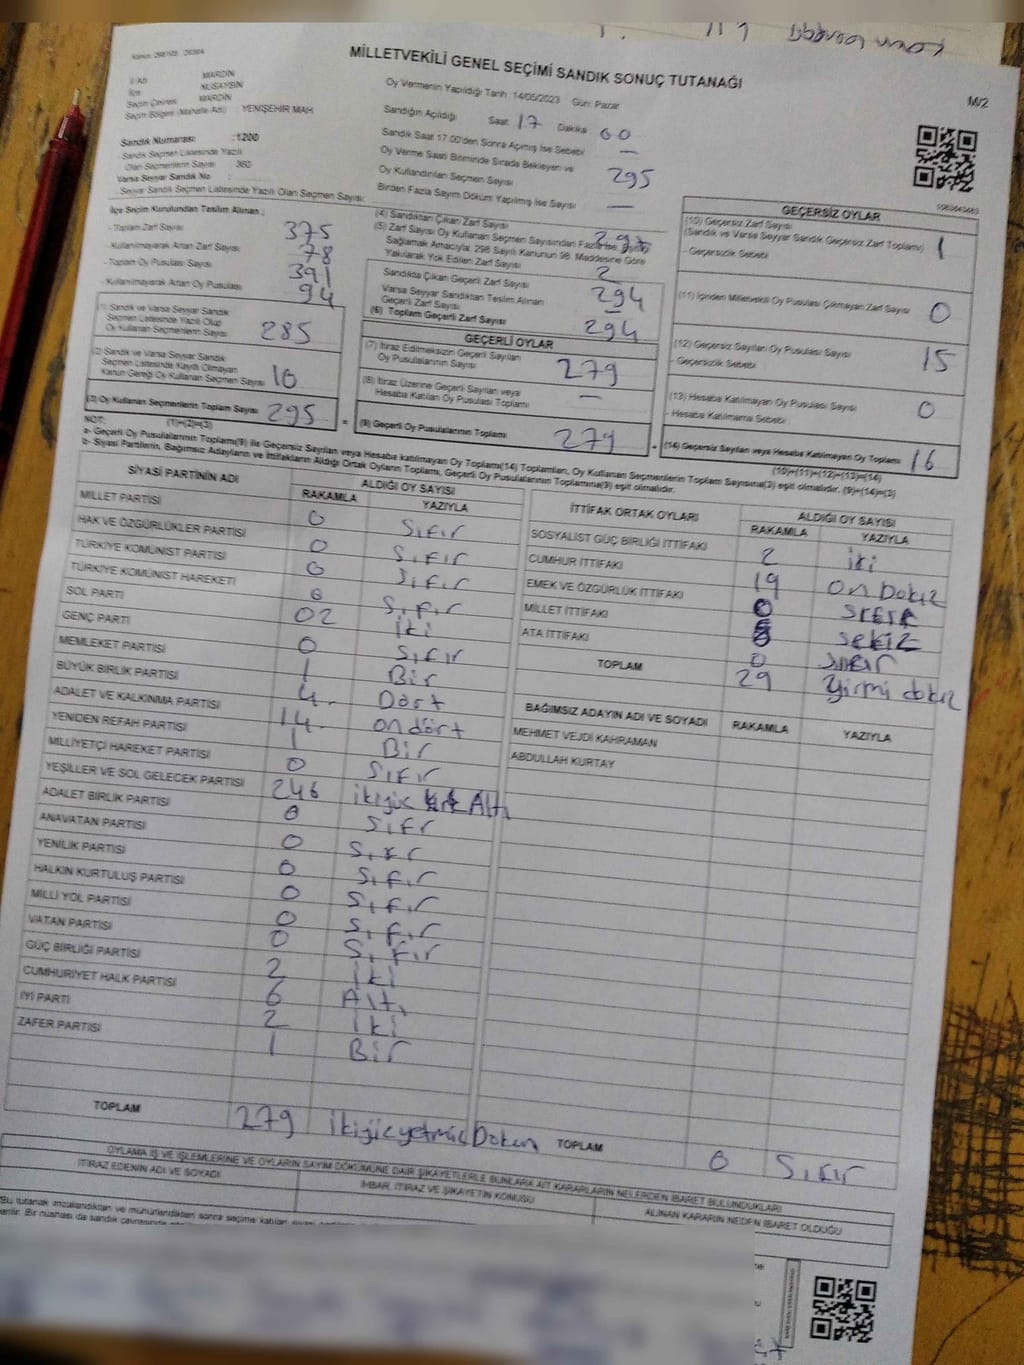 MİLLETVEKİLİ GENEL SEÇİMİ SANDIK SONUÇ TUTANAĞI
M/2
İl Adı MARDİN
İlçe NUSAYBİN
Seçim Çevresi MARDİN
Seçim Bölgesi (Mahalle Adı) YENİŞEHİR MAH
Sandık Numarası :1200
- Sandık Seçmen Listesinde Yazılı
Olan Seçmenlerin Sayısı 360
Varsa Seyyar Sandık No
- Seyyar Sandık Seçmen Listesinde Yazılı Olan Seçmen Sayısı:
Oy Vermenin Yapıldığı Tarih: 14/05/2023 Gün: Pazar
Sandığın Açıldığı Saat 17 Dakika 00
Sandık Saat 17.00'den Sonra Açılmış İse Sebebi —
Oy Verme Saati Bitiminde Sırada Bekleyen ve
Oy Kullandırılan Seçmen Sayısı 295
Birden Fazla Sayım Döküm Yapılmış İse Sayısı —
İlçe Seçim Kurulundan Teslim Alınan ;
- Toplam Zarf Sayısı 375
- Kullanılmayarak Artan Zarf Sayısı 78
- Toplam Oy Pusulası Sayısı 391
- Kullanılmayarak Artan Oy Pusulası 94
(1) Sandık ve Varsa Seyyar Sandık
Seçmen Listesinde Yazılı Olup
Oy Kullanan Seçmenlerin Sayısı 285
(2) Sandık ve Varsa Seyyar Sandık
Seçmen Listesinde Kayıtlı Olmayan
Kanun Gereği Oy Kullanan Seçmen Sayısı 10
(3) Oy Kullanan Seçmenlerin Toplam Sayısı 295
(1)+(2)=(3)
(4) Sandıktan Çıkan Zarf Sayısı
(5) Zarf Sayısı Oy Kullanan Seçmen Sayısından Fazla İse, Eşitliği
Sağlamak Amacıyla; 298 Sayılı Kanunun 98. Maddesine Göre
Yakılarak Yok Edilen Zarf Sayısı 2
Sandıkta Çıkan Geçerli Zarf Sayısı 294
Varsa Seyyar Sandıktan Teslim Alınan
Geçerli Zarf Sayısı —
(6) Toplam Geçerli Zarf Sayısı 294
GEÇERLİ OYLAR
(7) İtiraz Edilmeksizin Geçerli Sayılan
Oy Pusulalarının Sayısı 279
(8) İtiraz Üzerine Geçerli Sayılan veya
Hesaba Katılan Oy Pusulası Toplamı —
(9) Geçerli Oy Pusulalarının Toplamı 279
GEÇERSİZ OYLAR
(10) Geçersiz Zarf Sayısı
(Sandık ve Varsa Seyyar Sandık Geçersiz Zarf Toplamı) 1
- Geçersizlik Sebebi
(11) İçinden Milletvekili Oy Pusulası Çıkmayan Zarf Sayısı 0
(12) Geçersiz Sayılan Oy Pusulası Sayısı 15
- Geçersizlik Sebebi
(13) Hesaba Katılmayan Oy Pusulası Sayısı 0
- Hesaba Katılmama Sebebi :
(14) Geçersiz Sayılan veya Hesaba Katılmayan Oy Toplamı 16
(10)+(11)+(12)+(13)=(14)
NOT:
a- Geçerli Oy Pusulalarının Toplamı(9) ile Geçersiz Sayılan veya Hesaba katılmayan Oy Toplamı(14) Toplamları, Oy Kullanan Seçmenlerin Toplam Sayısına(3) eşit olmalıdır. (9)+(14)=(3)
b- Siyasi Partilerin, Bağımsız Adayların ve İttifakların Aldığı Ortak Oyların Toplamı, Geçerli Oy Pusulalarının Toplamına(9) eşit olmalıdır.
SİYASİ PARTİNİN ADI ALDIĞI OY SAYISI
RAKAMLA YAZIYLA
MİLLET PARTİSİ 0 Sıfır
HAK VE ÖZGÜRLÜKLER PARTİSİ 0 Sıfır
TÜRKİYE KOMÜNİST PARTİSİ 0 Sıfır
TÜRKİYE KOMÜNİST HAREKETİ 0 Sıfır
SOL PARTİ 02 iki
GENÇ PARTİ 0 Sıfır
MEMLEKET PARTİSİ 1 Bir
BÜYÜK BİRLİK PARTİSİ 4 Dört
ADALET VE KALKINMA PARTİSİ 14 ondört
YENİDEN REFAH PARTİSİ 1 Bir
MİLLİYETÇİ HAREKET PARTİSİ 0 Sıfır
YEŞİLLER VE SOL GELECEK PARTİSİ 246 ikiyüz kırk Altı
ADALET BİRLİK PARTİSİ 0 Sıfr
ANAVATAN PARTİSİ 0 Sıfır
YENİLİK PARTİSİ 0 Sıfır
HALKIN KURTULUŞ PARTİSİ 0 Sıfır
MİLLİ YOL PARTİSİ 0 Sıfır
VATAN PARTİSİ 0 Sıfır
GÜÇ BİRLİĞİ PARTİSİ 2 iki
CUMHURİYET HALK PARTİSİ 6 Altı
İYİ PARTİ 2 iki
ZAFER PARTİSİ 1 Bir
TOPLAM 279 ikiyüzyetmiş
İTTİFAK ORTAK OYLARI ALDIĞI OY SAYISI
RAKAMLA YAZIYLA
SOSYALİST GÜÇ BİRLİĞİ İTTİFAKI 2 iki
CUMHUR İTTİFAKI 19 on Dokız
EMEK VE ÖZGÜRLÜK İTTİFAKI 0 SIFIR
MİLLET İTTİFAKI 8 sekiz
ATA İTTİFAKI 0 sıfır
TOPLAM 29 yirmi dokız
BAĞIMSIZ ADAYIN ADI VE SOYADI RAKAMLA YAZIYLA
MEHMET VEJDİ KAHRAMAN
ABDULLAH KURTAY
TOPLAM 0 Sıfır
OYLAMA İŞ VE İŞLEMLERİNE VE OYLARIN SAYIM DÖKÜMÜNE DAİR ŞİKAYETLERLE BUNLARA AİT KARARLARIN NELERDEN İBARET BULUNDUKLARI
İTİRAZ EDENİN ADI VE SOYADI
İHBAR, İTİRAZ VE ŞİKAYETİN KONUSU
ALINAN KARARIN NEDEN İBARET OLDUĞU